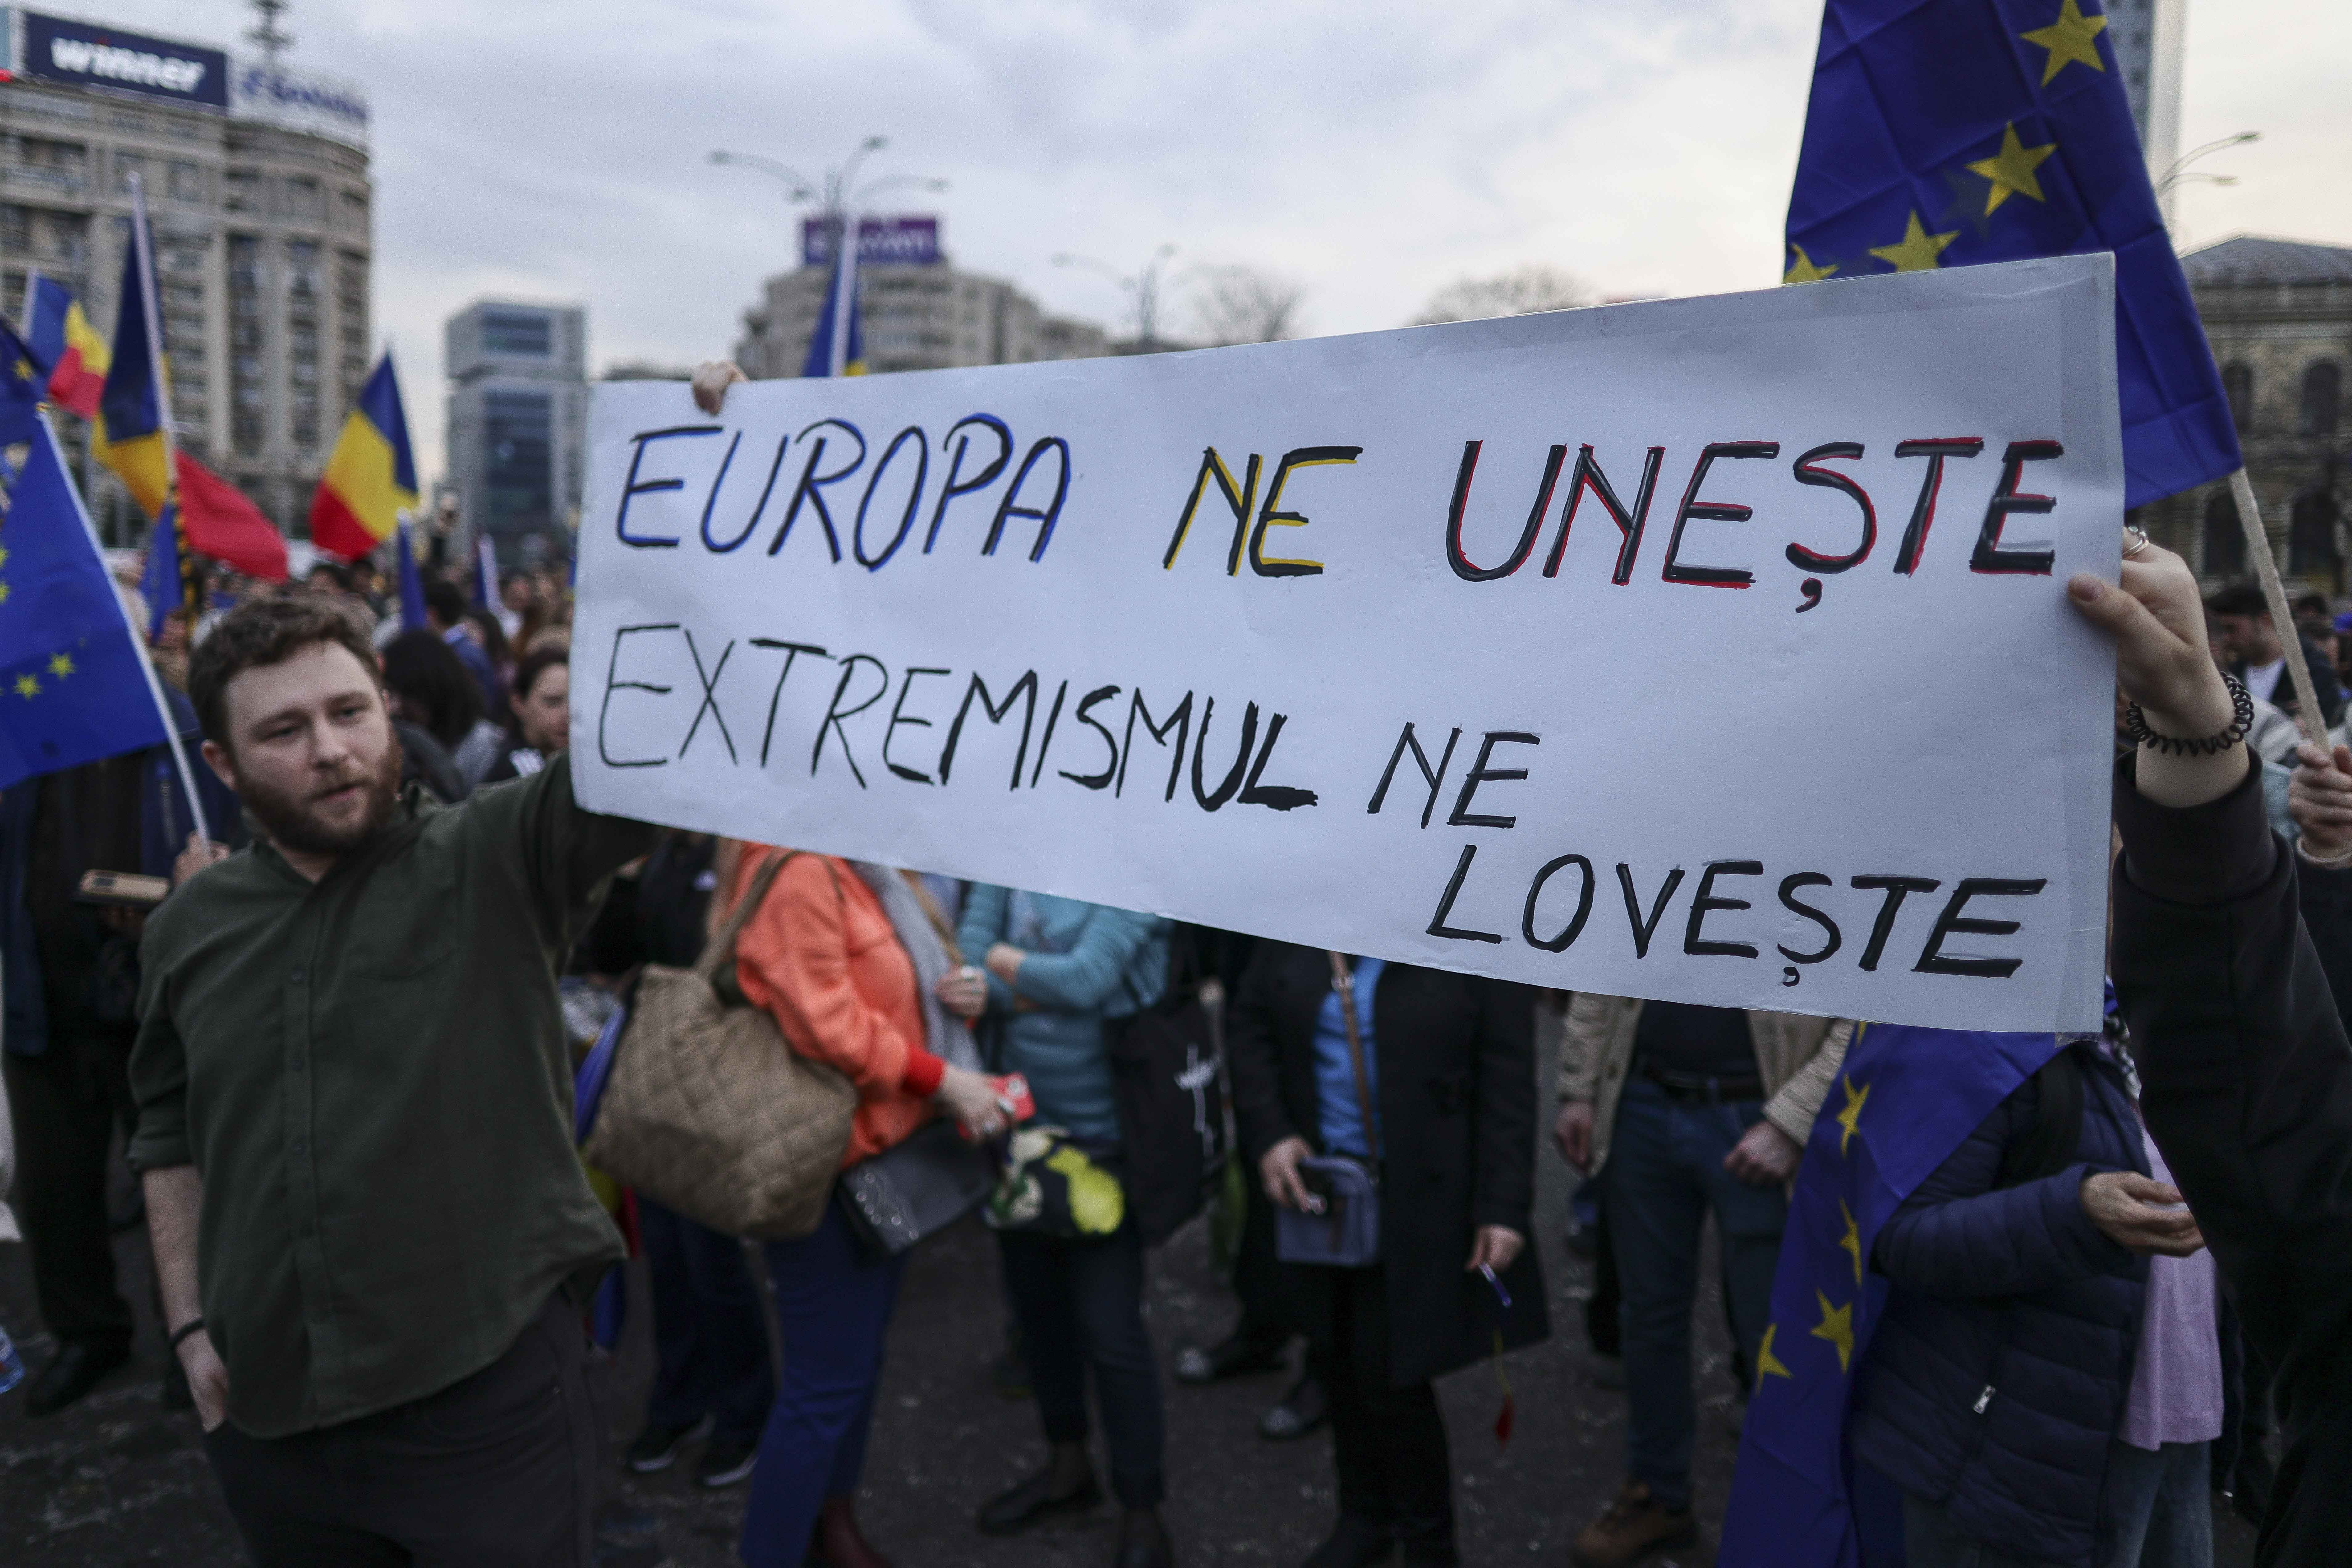 winner
EUROPA NE UNEȘTE
EXTREMISMUL NE
LOVEȘTE